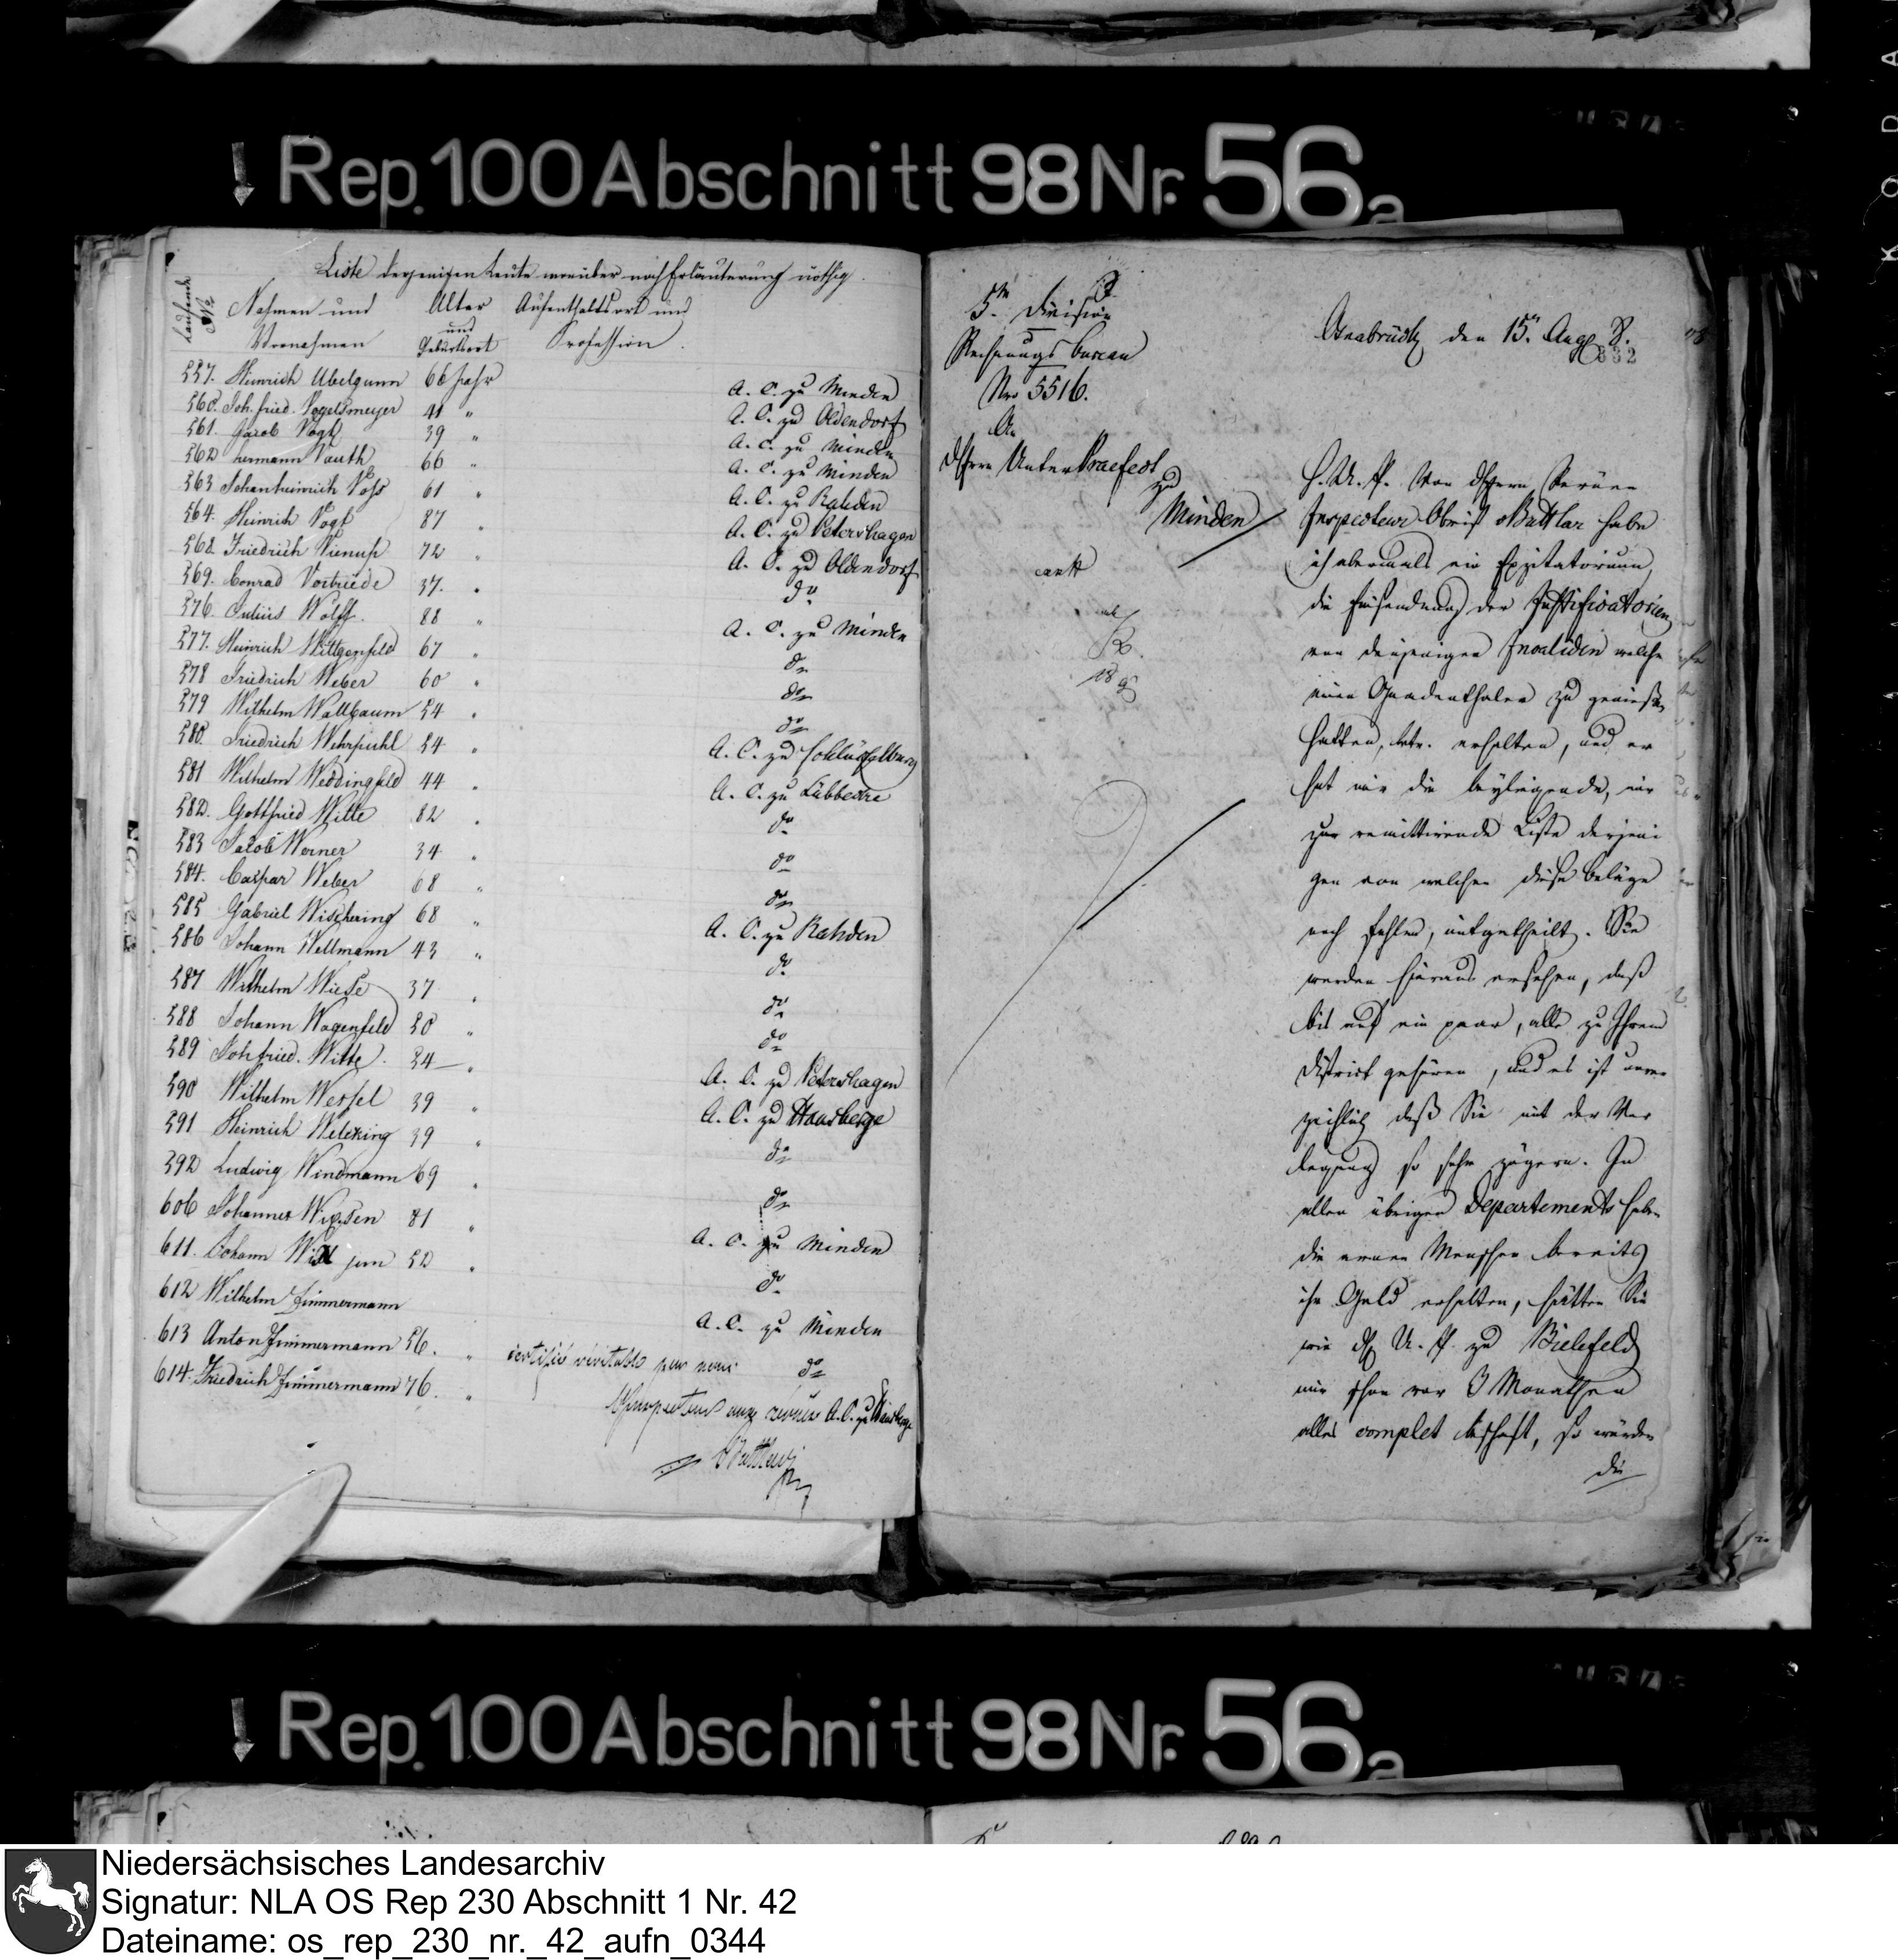 Rep. 100 Abschnitt 98 Nr. 56a
Liste derjenigen Leute worüber noch Erläuterung nöthig.
Laufende No
Nahmen und Vornahmen
Alter und Geburtsort
Aufenthaltsort und Profession.
557. Heinrich Ubelgunn 66 Jahr A. C. zu Minden
560. Joh. fried. Vogelsmeyer 41 " A. C. zu Oldendorf
561. Jacob Vogt 39 " A. C. zu Minden
562 Hermann Vauth 66 " A. C. zu Minden
563 Johan heinrich Voss 61 " A. C. zu Rahden
564. Heinrich Vogt 87 " A. C. zu Petershagen
568. Friedrich 72 " A. C. zu Oldendorf
569. Conrad Vortriede 37. " do
576. Julius Wolff. 88 " A. C. zu Minden
577. Heinrich Wittgenfeld 67 " do
578 Friedrich Weber 60 " do
579 Wilhelm Wallbaum 54 " do
580. Friedrich Wehrpuhl 54 " A. C. zu Schlüsselburg
581 Wilhelm Weddingfeld 44 " A. C. zu Lübbecke
582. Gottfried Witte 82 " do
583 Jacob Werner 34 " do
584. Caspar Weber 68 " do
585 Gabriel Wischering 68 " A. C. zu Rahden
586 Johann Wellmann 43 " do
587 Wilhelm Wiese 37 " do
588 Johann Wagenfeld 50 " do
589 Joh fried. Witte. 54 " A. C. zu Petershagen
590 Wilhelm Wessel 39 " A. C. zu Hausberge
591 Heinrich Weleking 39 " do
592 Ludwig Windmann 69 " do
606 Johannes 81 " A. C. zu Minden
611. Johann jun 52 " do
612 Wilhelm Zimmermann A. C. zu Minden
613 Anton Zimmermann 56. " do
614. Friedrich Zimmermann 76. " A. C. zu Hausberge
certifié véritable par nous
l'Inspecteur aux revues
5te Division
Rechnungs bureau
Nro 5516.
An
d Herrn Unter Praefect
zu
Minden
Osnabrück den 15n Aug
332
H. U. P. Von d Herrn Revüen
Inspecteur Obrist Buttlar habe
ich abermals ein Exzitatorium,
die Einsendung der Justificatorien
von denjenigen Invaliden welche
einen Gnadenthaler zu genießen
hatten, betr. erhalten, und er
hat mir die beyliegende, mir
zur remittirende Liste derjeni
gen von welchen diese Beläge
noch fehlen, mitgetheilt. Sie
werden hieraus ersehen, daß
bis auf ein paar, alle zu Ihrem
District gehören, und es ist unver
zeihlich daß Sie mit der Vor
legung so sehr zögern. In
allen übrigen Departements haben
die armen Menschen bereits
ihr Geld erhalten, hätten Sie
wie d U. P. zu Bielefeld
mir schon vor 3 Monathen
alles complet beschaft, so würden
die
Rep. 100 Abschnitt 98 Nr. 56a
Niedersächsisches Landesarchiv
Signatur: NLA OS Rep 230 Abschnitt 1 Nr. 42
Dateiname: os_rep_230_nr._42_aufn_0344